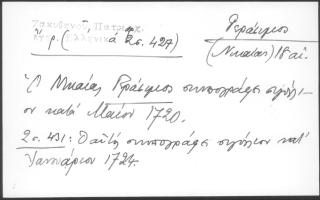 Ζακυθηνοῦ, Πατριαρχ.
ἔγγρ. (Ἑλληνικά 2 σ. 427)
Γεράσιμος
(Νικαίας) 18 αἰ.
Ὁ Νικαίας Γεράσιμος συνυπογράφει σιγίλλι-
ον κατά Μαΐον 1720.
2 σ. 431: Ὁ αὐτός συνυπογράφει σιγίλλιον κατ'
Ἰαννουάριον 1724.